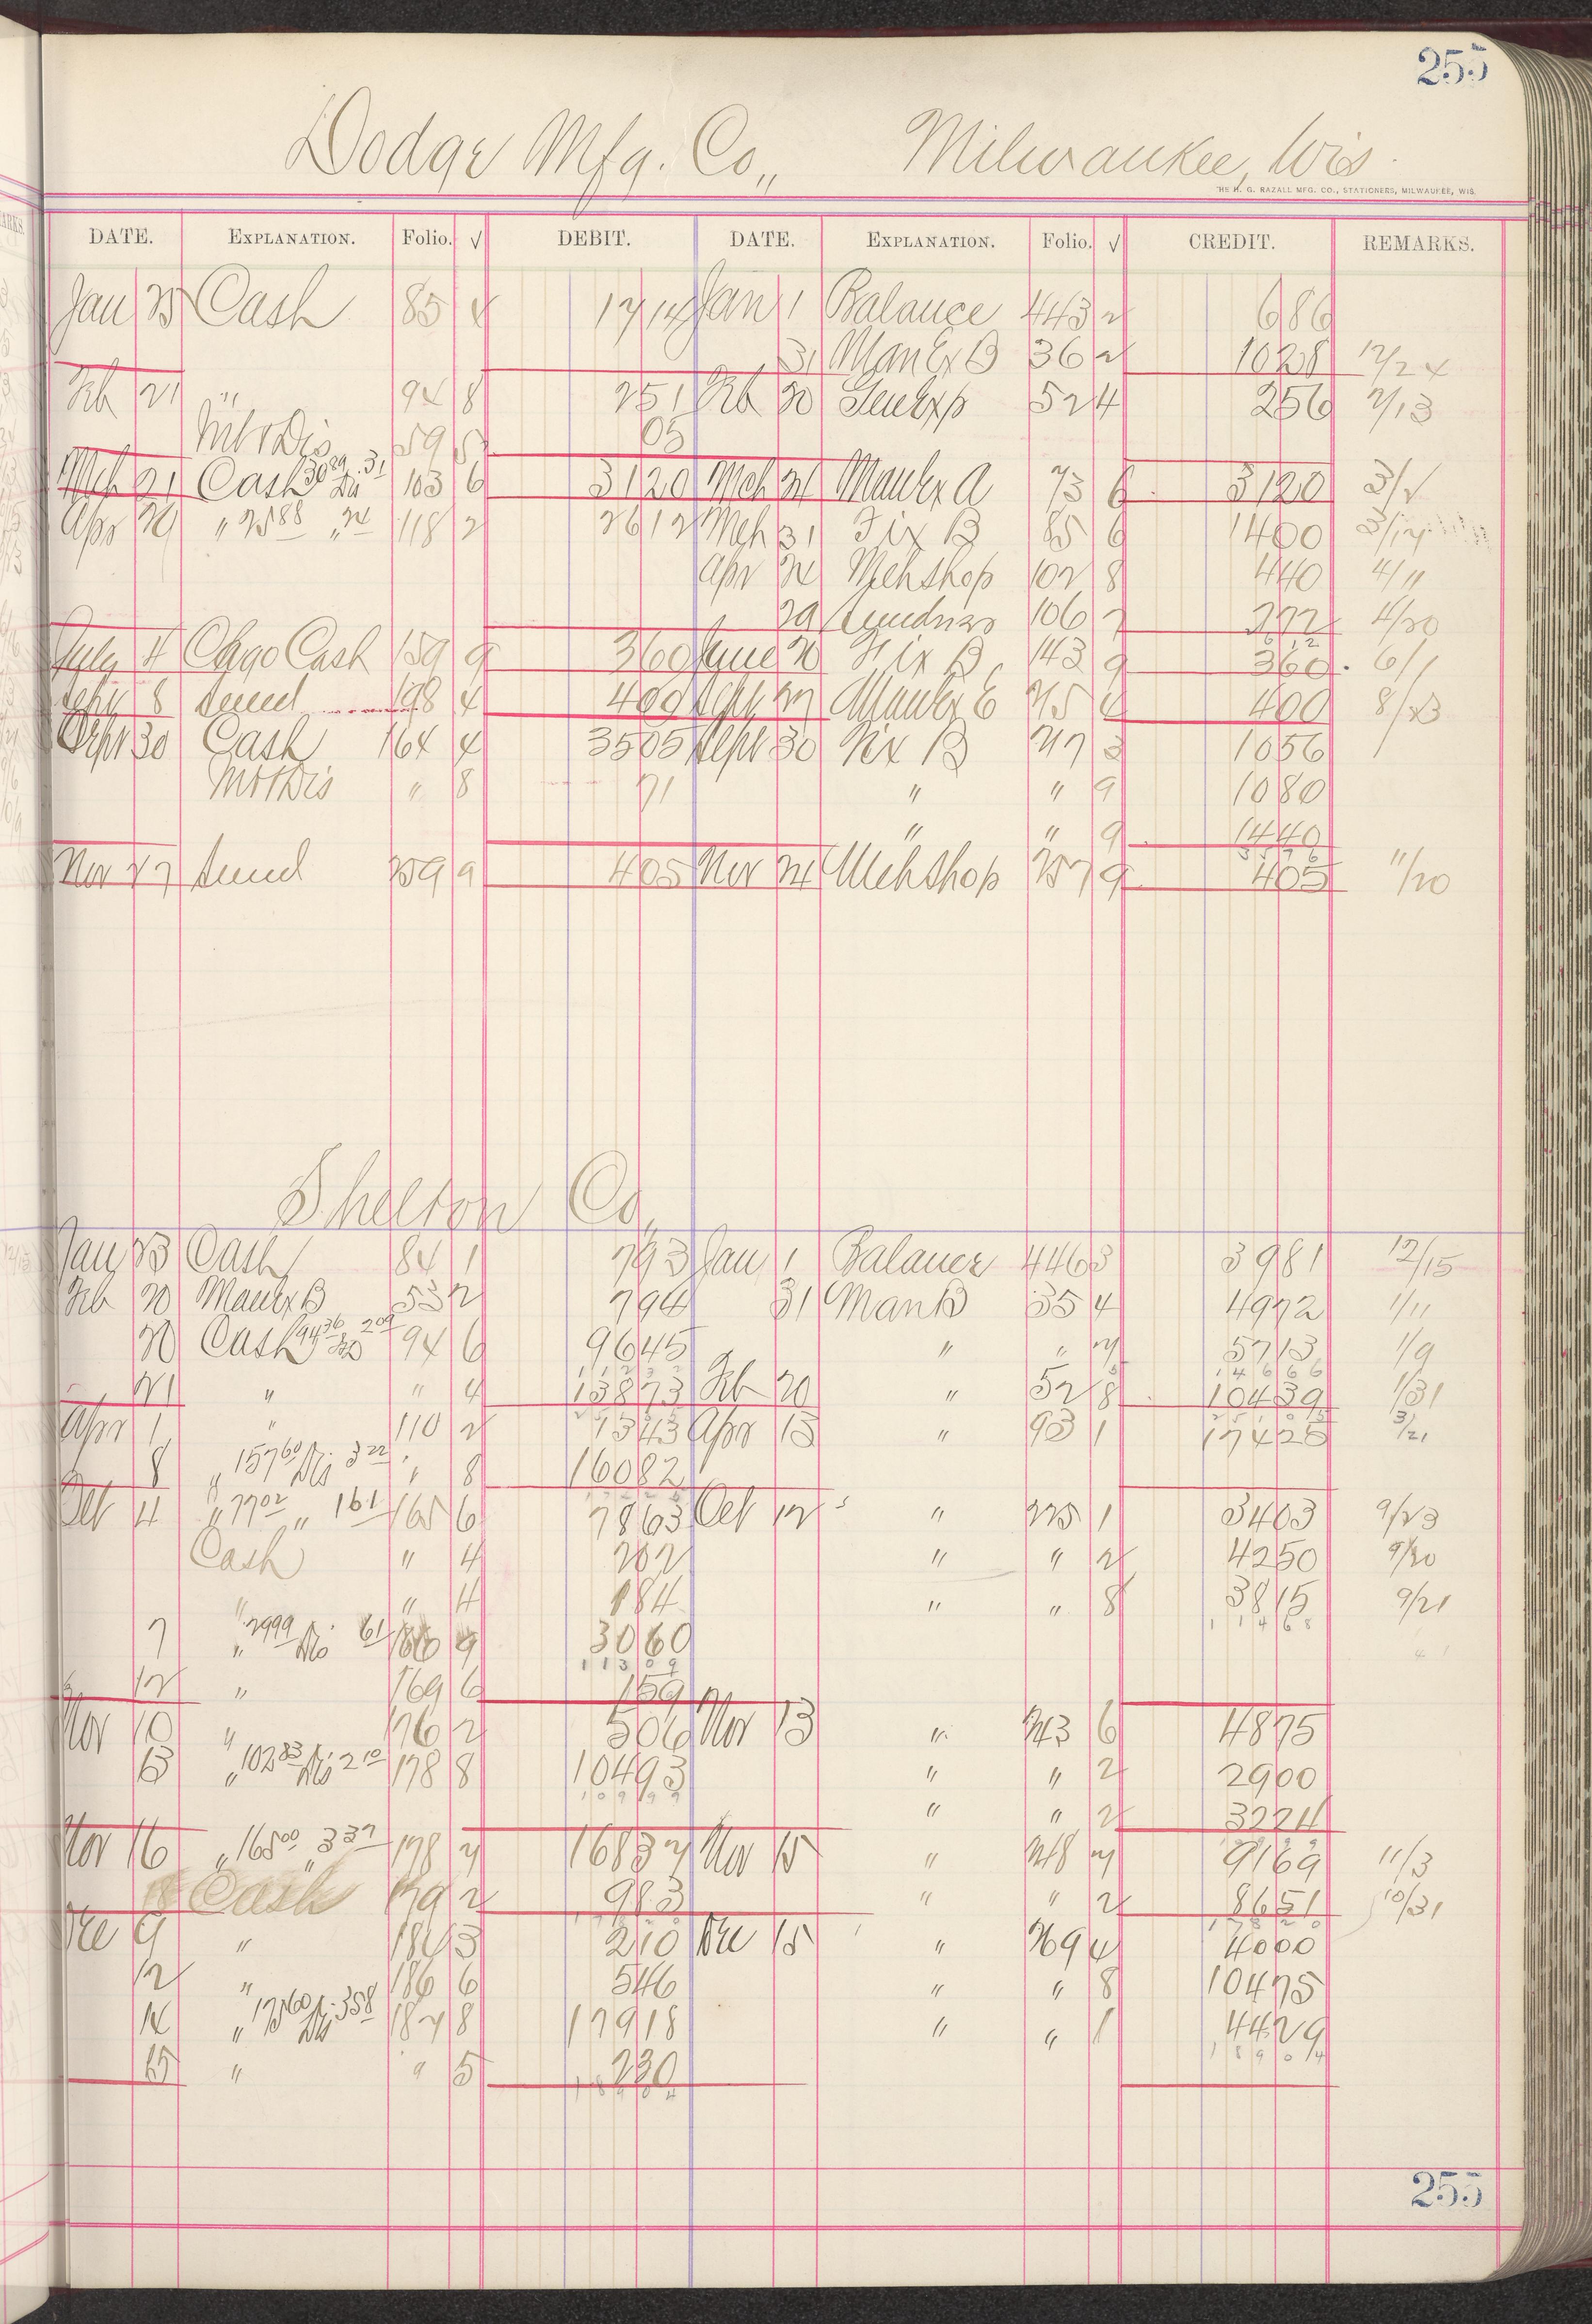 255
Dodge Mfg. Co., Milwaukee, Wis.
THE H. G. RAZALL MFG. CO., STATIONERS, MILWAUKEE, WIS.
DATE. EXPLANATION. Folio. √ DEBIT. DATE. EXPLANATION. Folio. √ CREDIT. REMARKS.
Jan 25 Cash 85 4 1714 Jan 1 Balance 443 2 686
31 ManEx B 36 2 1028 12/24
Feb 21 " 94 8 251 Feb 20 GenExp 52 4 256 2/13
Int & Dis 59 5 05
Mch 21 Cash 30 89 Dis 31 103 6 3120 Mch 24 ManEx A 73 6 3120 3/2
Apr 29 " 25 88 " 24 118 2 2612 Mch 31 Fix B 85 6 1400 3/14
Apr 24 Mchshop 102 8 440 4/11
29 Sundries 106 2 772 4/20
July 4 Chgo Cash 159 9 360 June 20 Fix B 143 9 360 6/1
Sept 8 Sund 198 4 400 Sept 400 8/23
Sept 30 Cash 164 4 3505 Sept 30 Fix B 217 3 1056
Int & Dis " 8 71 " " 9 1080
" " 9 1440
Nov 27 Sund 259 9 405 Nov 24 Mchshop 257 9 405 11/20
Shelton Co.
Jan 23 Cash 84 1 793 Jan 1 Balance 446 3 3981 12/15
Feb 20 ManEx B 53 2 794 31 Man B 35 4 4972 1/11
20 Cash 94 36 Dis 2 09 94 6 9645 " " 5713 1/9
21 " " 4 13873 Feb 20 " 52 8 10439 1/31
Apr 1 " 110 2 1343 Apr 13 " 93 1 17425 3/21
8 " 157 60 Dis 3 22 " 8 16082
Oct 4 " 77 02 " 1 61 165 6 7863 Oct 12 " 225 1 3403 9/23
Cash " 4 202 " " 2 4250 9/20
" " 4 184 " " 8 3815 9/21
7 " 29 99 Dis 61 166 9 3060
12 " 169 6 159
Nov 10 " 176 2 506 Nov 13 " 243 6 4875
13 " 102 83 Dis 2 10 178 8 10493 " " 2 2900
" " 2 3224
Nov 16 " 165 00 " 3 37 178 7 16837 Nov 15 " 248 7 9169 11/3
Cash 179 2 983 " " 2 8651 10/31
Dec 9 " 184 3 210 Dec 15 " 269 4 4000
12 " 186 6 546 " " 8 10475
14 " 175 60 Dis 3 58 187 8 17918 " " 1 4429
15 " " 5 230
255